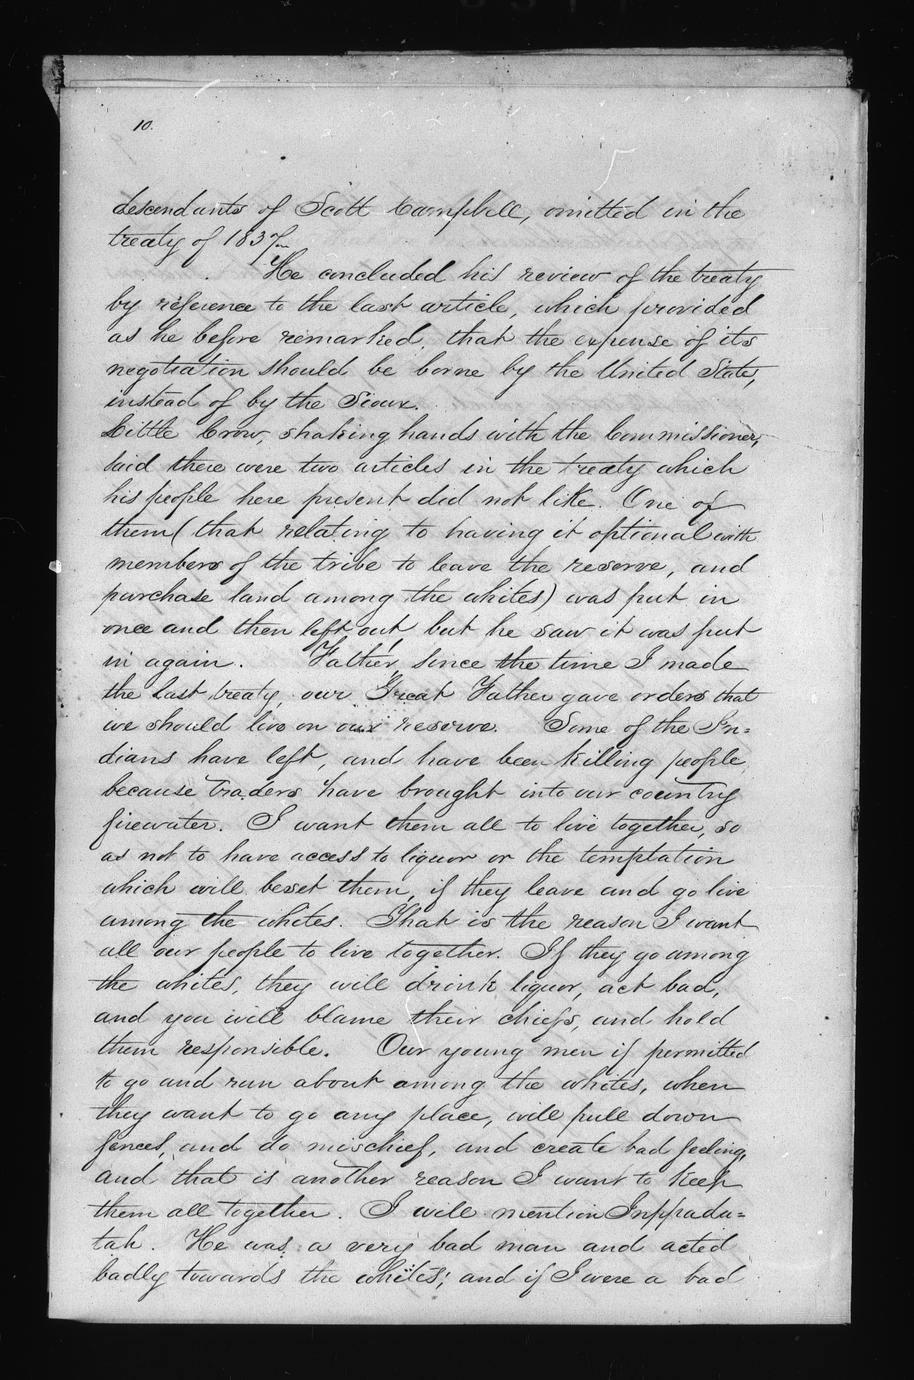 10.
descendants of Scott Campbell, omitted in the
treaty of 1837.
He concluded his review of the treaty
by reference to the last article, which provided
as he before remarked, that the expense of its
negotiation should be borne by the United States,
instead of by the Sioux.
Little Crow, shaking hands with the Commissioner,
said there were two articles in the treaty which
his people here present did not like. One of
them (that relating to having it optional with
members of the tribe to leave the reserve, and
purchase land among the whites) was put in
once and then left out, but he saw it was put
in again. Father, since the time I made
the last treaty, our Great Father gave orders that
we should live on our reserve. Some of the In=
dians have left, and have been killing people,
because traders have brought into our country
firewater. I want them all to live together, so
as not to have access to liquor or the temptation
which will beset them, if they leave and go live
among the whites. That is the reason I want
all our people to live together. If they go among
the whites, they will drink liquor, act bad,
and you will blame their chiefs, and hold
them responsible. Our young men if permitted
to go and run about among the whites, when
they want to go any place, will pull down
fences, and do mischief, and create bad feeling,
and that is another reason I want to keep
them all together. I will mention Inppadu=
tah. He was a very bad man and acted
badly towards the whites; and if I were a bad